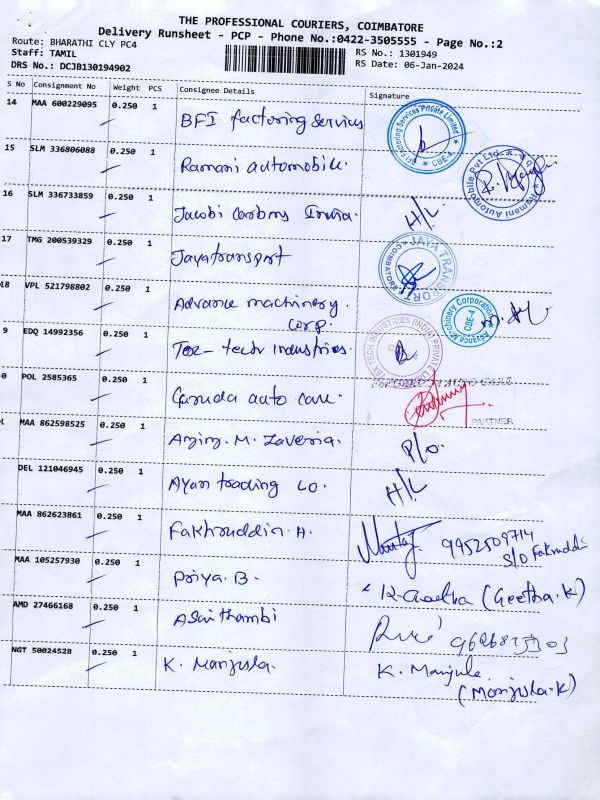 THE PROFESSIONAL COURIERS, COIMBATORE
Delivery Runsheet - PCP - Phone No.:0422-3505555 - Page No.:2
Route: BHARATHI CLY PC4
RS No.: 1301949
Staff: TAMIL
RS Date: 06-Jan-2024
DRS No.: DCJB130194902
S No Consignment No Weight PCS Consignee Details Signature
14 MAA 600229095 0.250 1 BFI factoring services
BFI Factoring Services Private Limited CBE-4
15 SLM 336806088 0.250 1 Ramani automobile.
Ramani Automobile Pvt Ltd.
16 SLM 336733859 0.250 1 Jacobi Carbons India. H/L
17 TMG 200539329 0.250 1 Jayatransport
JAYA TRANSPORT COIMBATORE
18 VPL 521798802 0.250 1 Advance machinery corp.
Advance Machinery Corporation CBE-4
9 EDQ 14992356 0.250 1 Tex-tech industries.
TEX TECH INDUSTRIES (INDIA) PRIVATE
0 POL 2585365 0.250 1 Garuda auto care.
AUTO CARE
PARTNER
MAA 862598525 0.250 1 P/O.
DEL 121046945 0.250 1 Ayan trading Co. H/L
MAA 862623861 0.250 1 Fakhruddin. H. 9952509714
S/O Fakruddi
MAA 105257930 0.250 1 Priya. B. (Geetha.K)
AMD 27466168 0.250 1
NGT 50024528 0.250 1 K. Manjula. K. Manjula
(Manjula.K)